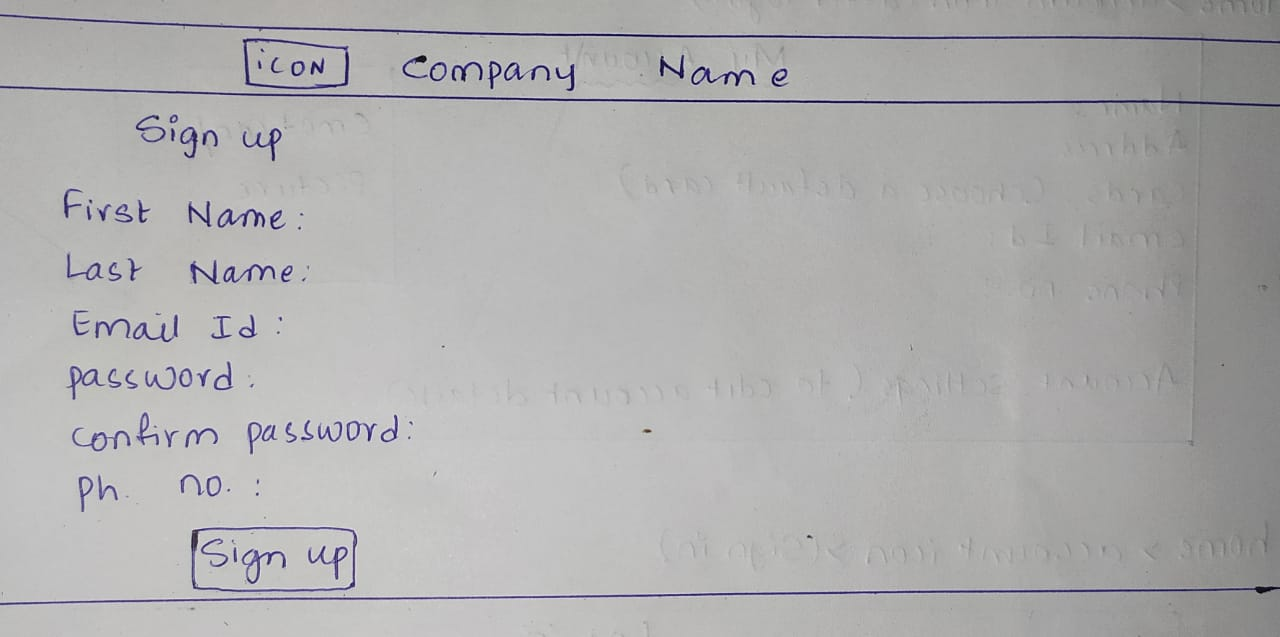 iCON Company Name
Sign up
First Name:
Last Name:
Email Id:
password:
confirm password:
Ph. no.:
Sign up